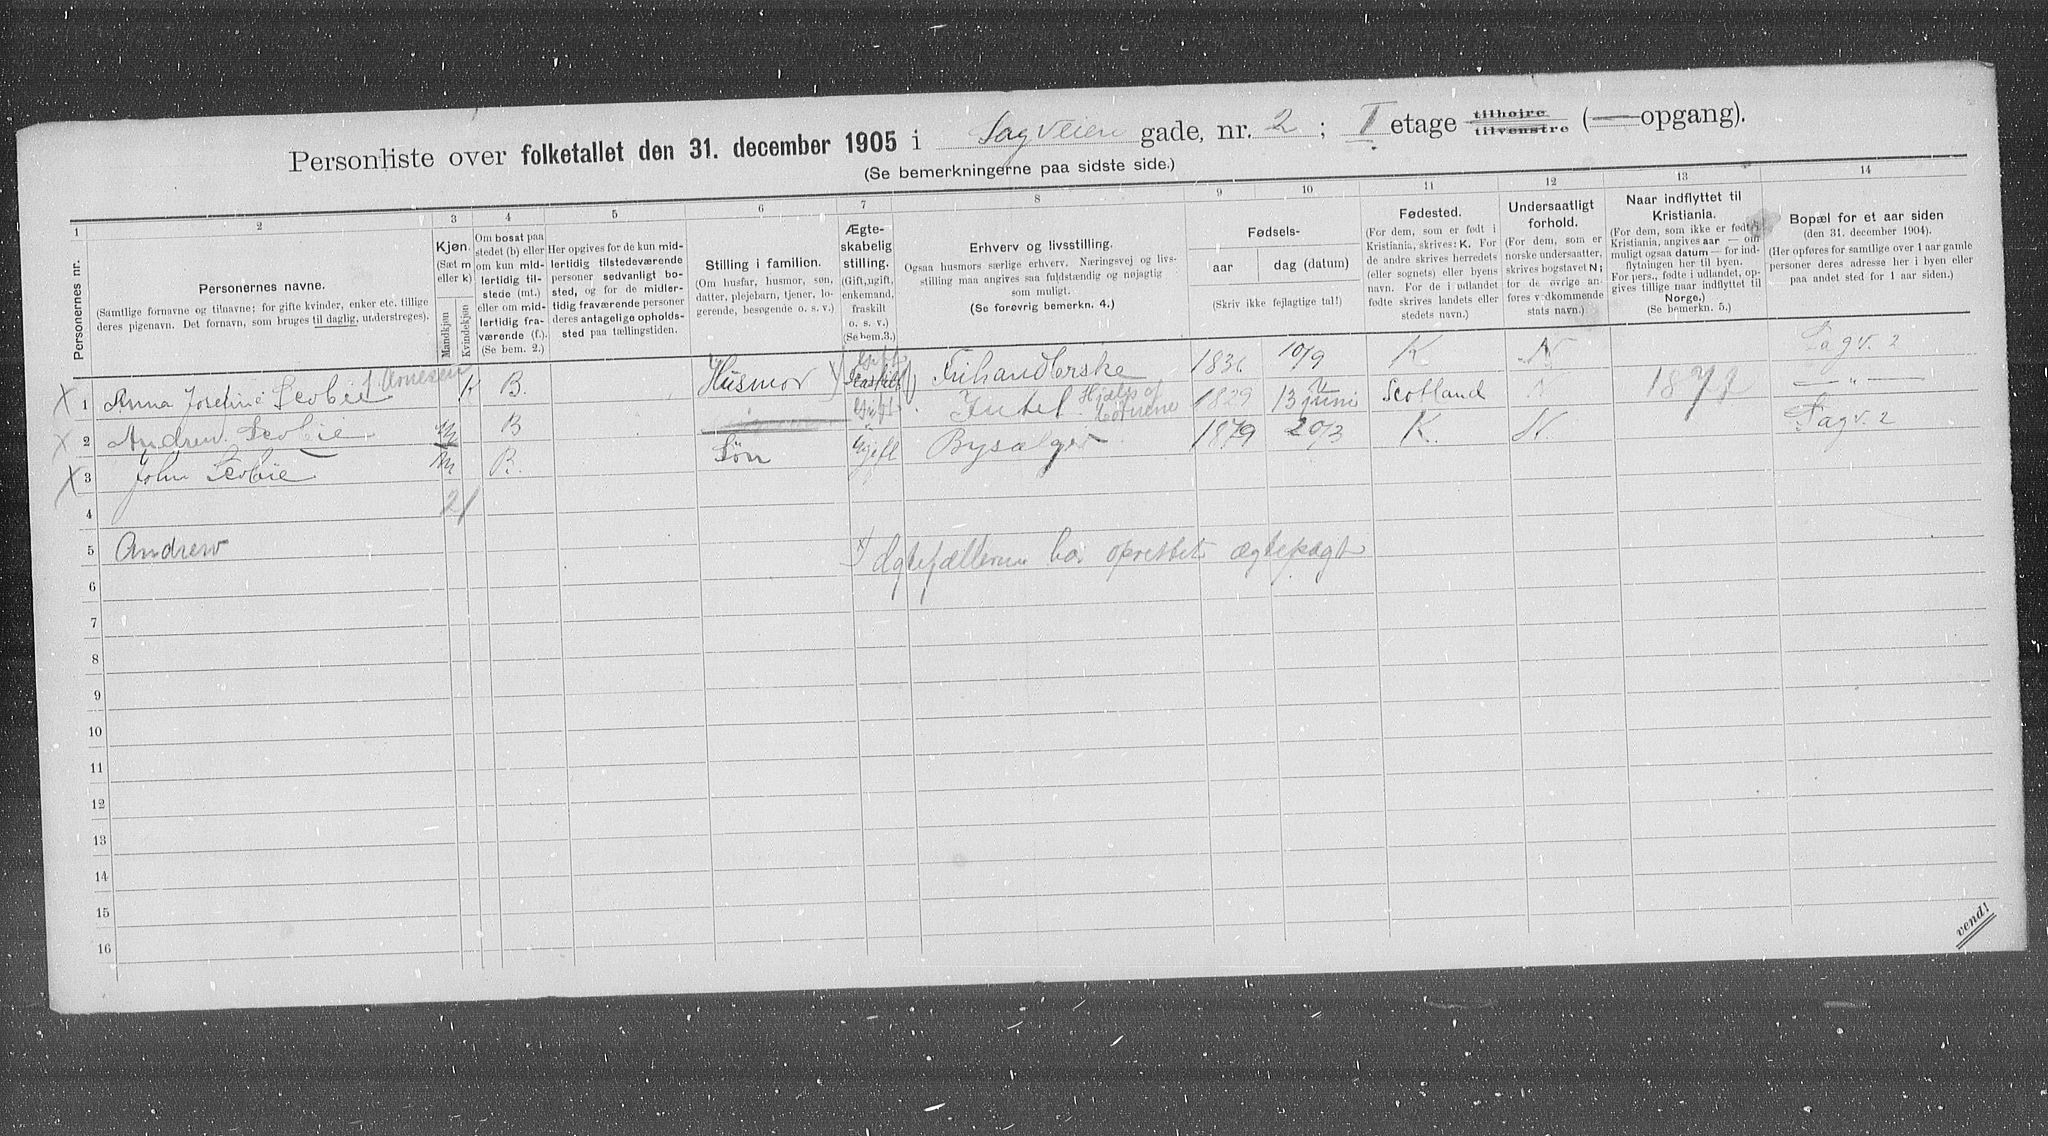 Personliste over folketallet den 31. december 1905 i Sagveien gade, nr. 2 ; I etage tilhøire tilvenstre (—opgang).
(Se bemerkningerne paa sidste side.)
1 2 3 4 5 6 7 8 9 10 11 12 13 14
Personernes nr.
Personernes navne.
(Samtlige fornavne og tilnavne; for gifte kvinder, enker etc. tillige deres pigenavn. Det fornavn, som bruges til daglig, understreges).
Kjøn.
(Sæt m eller k)
Mandkjøn
Kvindekjøn
Om bosat paa stedet (b) eller om kun midlertidig tilstede (mt.) eller om midlertidig fraværende (f.). (Se bem. 2.)
Her opgives for de kun midlertidig tilstedeværende personer sedvanligt bosted, og for de midlertidig fraværende personer deres antagelige opholdssted paa tællingstiden.
Stilling i familien.
(Om husfar, husmor, søn, datter, plejebarn, tjener, logerende, besøgende o. s. v.)
Ægteskabelig stilling.
(Gift, ugift, enkemand, fraskilt o. s. v.)
(Se bem. 3.)
Erhverv og livsstilling.
Ogsaa husmors særlige erhverv. Næringsvej og livsstilling maa angives saa fuldstændig og nøjagtig som muligt.
(Se forøvrig bemerkn. 4.)
Fødsels-
aar
dag (datum)
(Skriv ikke fejlagtige tal!)
Fødested.
(For dem, som er født i Kristiania, skrives: K. For de andre skrives herredets (eller sognets) eller byens navn. For de i udlandet fødte skrives landets eller stedets navn.)
Undersaatligt forhold.
(For dem, som er norske undersaatter, skrives bogstavet N; for de øvrige anføres vedkommende stats navn.)
Naar indflyttet til Kristiania.
(For dem, som ikke er født i Kristiania, angives aar — om muligt ogsaa datum — for indflytningen her til byen. For pers., fødte i udlandet, opgives tillige naar indflyttet til Norge.)
(Se bemerkn. 5.)
Bopæl for et aar siden
(den 31. december 1904).
(Her opføres for samtlige over 1 aar gamle personer deres adresse her i byen eller paa andet sted for 1 aar siden.)
X 1 Anna Josefine Scobie f. Arnesen K B. Husmor Gift Fraskilt Frihandlerske 1836 10/9 K N Sagv. 2
X 2 Andrew Scobie m B Gift Intet. Hjelps af 1829 13 Juni Scotland N 1871 — " —
X 3 John Scobie m B. Søn Gift Bysælger 1879 20/3 K. N. Sagv. 2
4 21
5 Andrew x) Ægtefællerne har oprettet ægtepagt
6
7
8
9
10
11
12
13
14
15
16
vend!